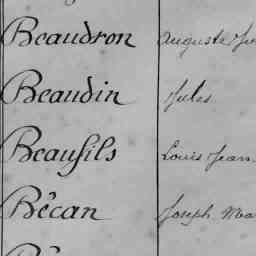 Beaudron Auguste
Beaudin Jules
Beaufils Louis Jean
Bécan Joseph